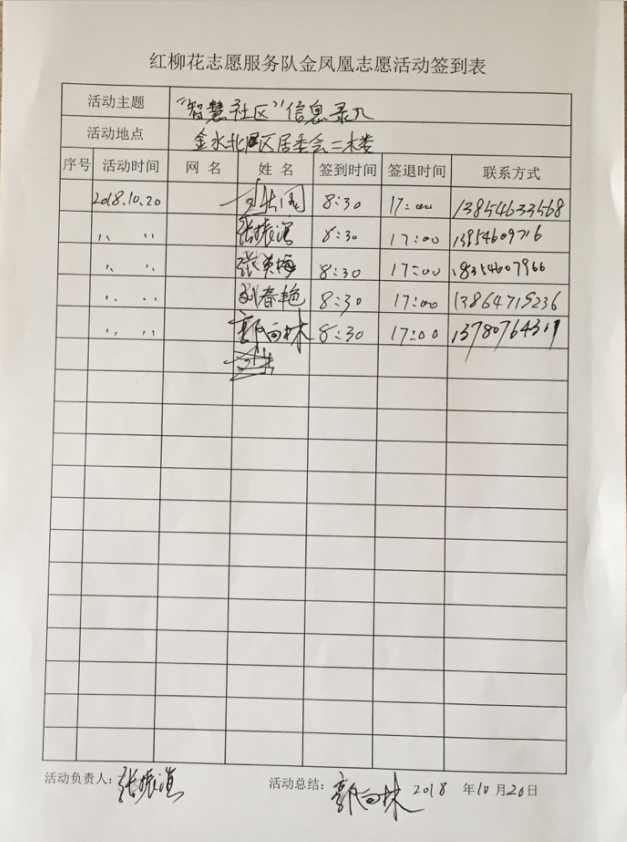 红柳花志愿服务队金凤凰志愿活动签到表
活动主题 "智慧社区"信息录入
活动地点 金水北区居委会二楼
序号 活动时间 网 名 姓 名 签到时间 签退时间 联系方式
2018.10.20 8:30 17:00 13854633568
〃 〃 张振滨 8:30 17:00
〃 〃 张英梅 8:30 17:00 18354607966
〃 〃 刘春艳 8:30 17:00 13864719236
〃 〃 郭向林 8:30 17:00
活动负责人: 张振滨 活动总结: 郭向林 2018 年10月20日